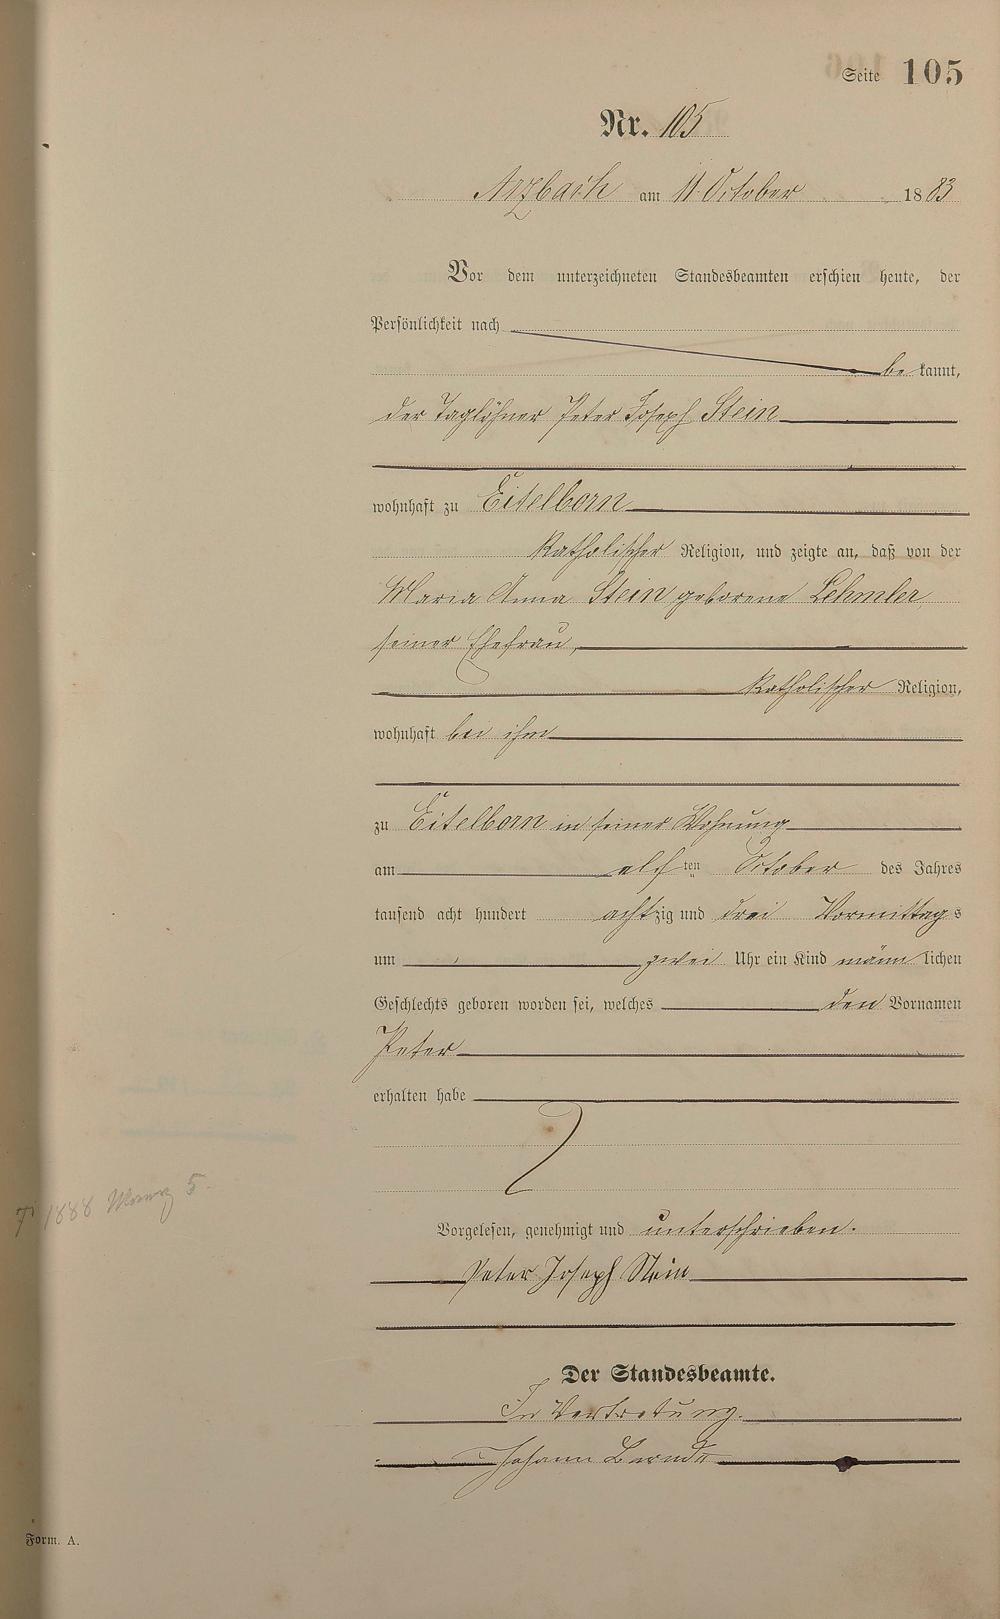 Seite 105
Nr. 105
Arzbach am 11. October 1883
Vor dem unterzeichneten Standesbeamten erschien heute, der
Persönlichkeit nach
be kannt,
der Taglöhner Peter Joseph Stein
wohnhaft zu Eitelborn
katholischer Religion, und zeigte an, daß von der
Maria Anna Stein geborene Lehmler,
seiner Ehefrau,
katholischer Religion,
wohnhaft bei ihm
zu Eitelborn in seiner Wohnung
am elf ten October des Jahres
tausend acht hundert achtzig und drei Vormittags
um zwei Uhr ein Kind männ lichen
Geschlechts geboren worden sei, welches den Vornamen
Peter
erhalten habe
† 1888 5.
Vorgelesen, genehmigt und unterschrieben.
Peter Joseph Stein
Der Standesbeamte.
In Vertretung.
Johann
Form. A.